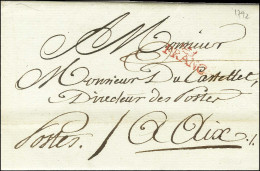 1792
A Monsieur
FRANC
Monsieur Du Castellet,
Directeur des Postes
Postes. A Aix ./.